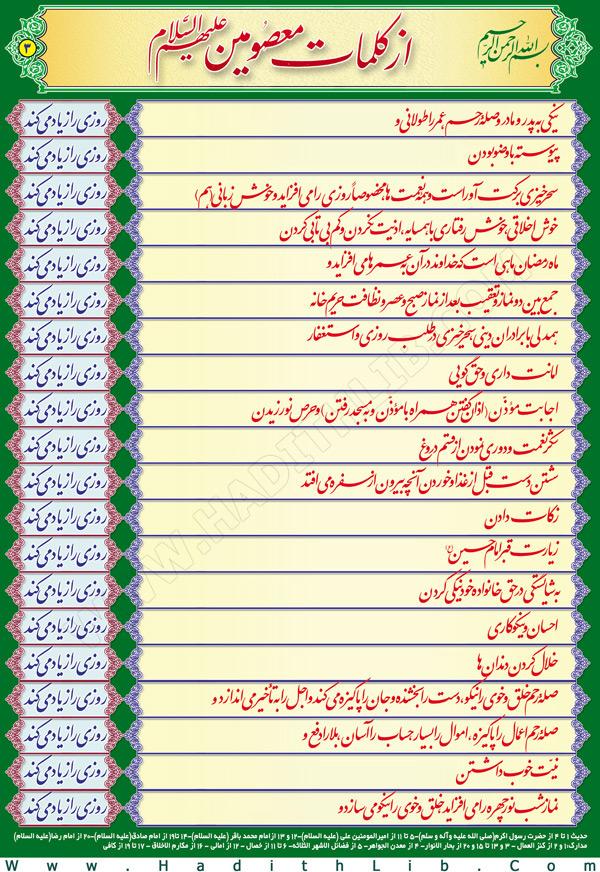 بسم الله الرحمن الرحیم
از کلمات معصومین علیهم السلام
۳
نیکی به پدر و مادر و صلهٔ رحم عمر را طولانی و روزی را زیاد می کند
پیوسته با وضو بودن روزی را زیاد می کند
سحرخیزی برکت آور است و همهٔ نعمت ها مخصوصاً روزی را می افزاید و خوش زبانی (هم) روزی را زیاد می کند
خوش اخلاقی، خوش رفتاری با همسایه، اذیت نکردن و کم بی تابی کردن روزی را زیاد می کند
ماه رمضان ماهی است که خداوند در آن عمرها می افزاید و روزی را زیاد می کند
جمع بین دو نماز و تعقیب بعد از نماز صبح و عصر و نظافت حریم خانه روزی را زیاد می کند
همدلی با برادران دینی، سحرخیزی در طلب روزی و استغفار روزی را زیاد می کند
امانت داری و حق گویی روزی را زیاد می کند
اجابت مؤذن (اذان گفتن همراه با مؤذن و به مسجد رفتن) و حرص نورزیدن روزی را زیاد می کند
شکر نعمت و دوری نمودن از قسم دروغ روزی را زیاد می کند
شستن دست قبل از غذا و خوردن آنچه بیرون از سفره می افتد روزی را زیاد می کند
زکات دادن روزی را زیاد می کند
زیارت قبر امام حسین (ع) روزی را زیاد می کند
به شایستگی در حق خانواده خود نیکی کردن روزی را زیاد می کند
احسان و نیکوکاری روزی را زیاد می کند
خلال کردن دندان ها روزی را زیاد می کند
صلهٔ رحم خلق و خوی را نیکو، دست را بخشنده و جان را پاکیزه می کند و اجل را به تأخیر می اندازد و روزی را زیاد می کند
صلهٔ رحم اعمال را پاکیزه، اموال را بسیار حساب را آسان، بلا را دفع و روزی را زیاد می کند
نیّت خوب داشتن روزی را زیاد می کند
نماز شب نور چهره را می افزاید، خلق و خوی را نیکو می سازد و روزی را زیاد می کند
حدیث ۱ تا ۴ از حضرت رسول اکرم(صلی الله علیه وآله و سلم)-۵ تا ۱۱ از امیرالمومنین علی (علیه السلام)-۱۲ و ۱۳ ازامام محمد باقر (علیه السلام)-۱۴ تا۱۹ از امام صادق(علیه السلام)-۲۰ از امام رضا(علیه السلام)
مدارک:۱ و ۲ از کنز العمال - ۳ و ۱۳ تا ۱۵ و ۲۰ از بحار الانوار- ۴ از معدن الجواهر- ۵ از فضائل الاشهر الثلاثه- ۶ تا ۱۱ از خصال - ۱۲ از امالی - ۱۶ از مکارم الاخلاق - ۱۷ تا ۱۹ از کافی
Www.HadithLib.Com
WWW.HADITHLIB.COM